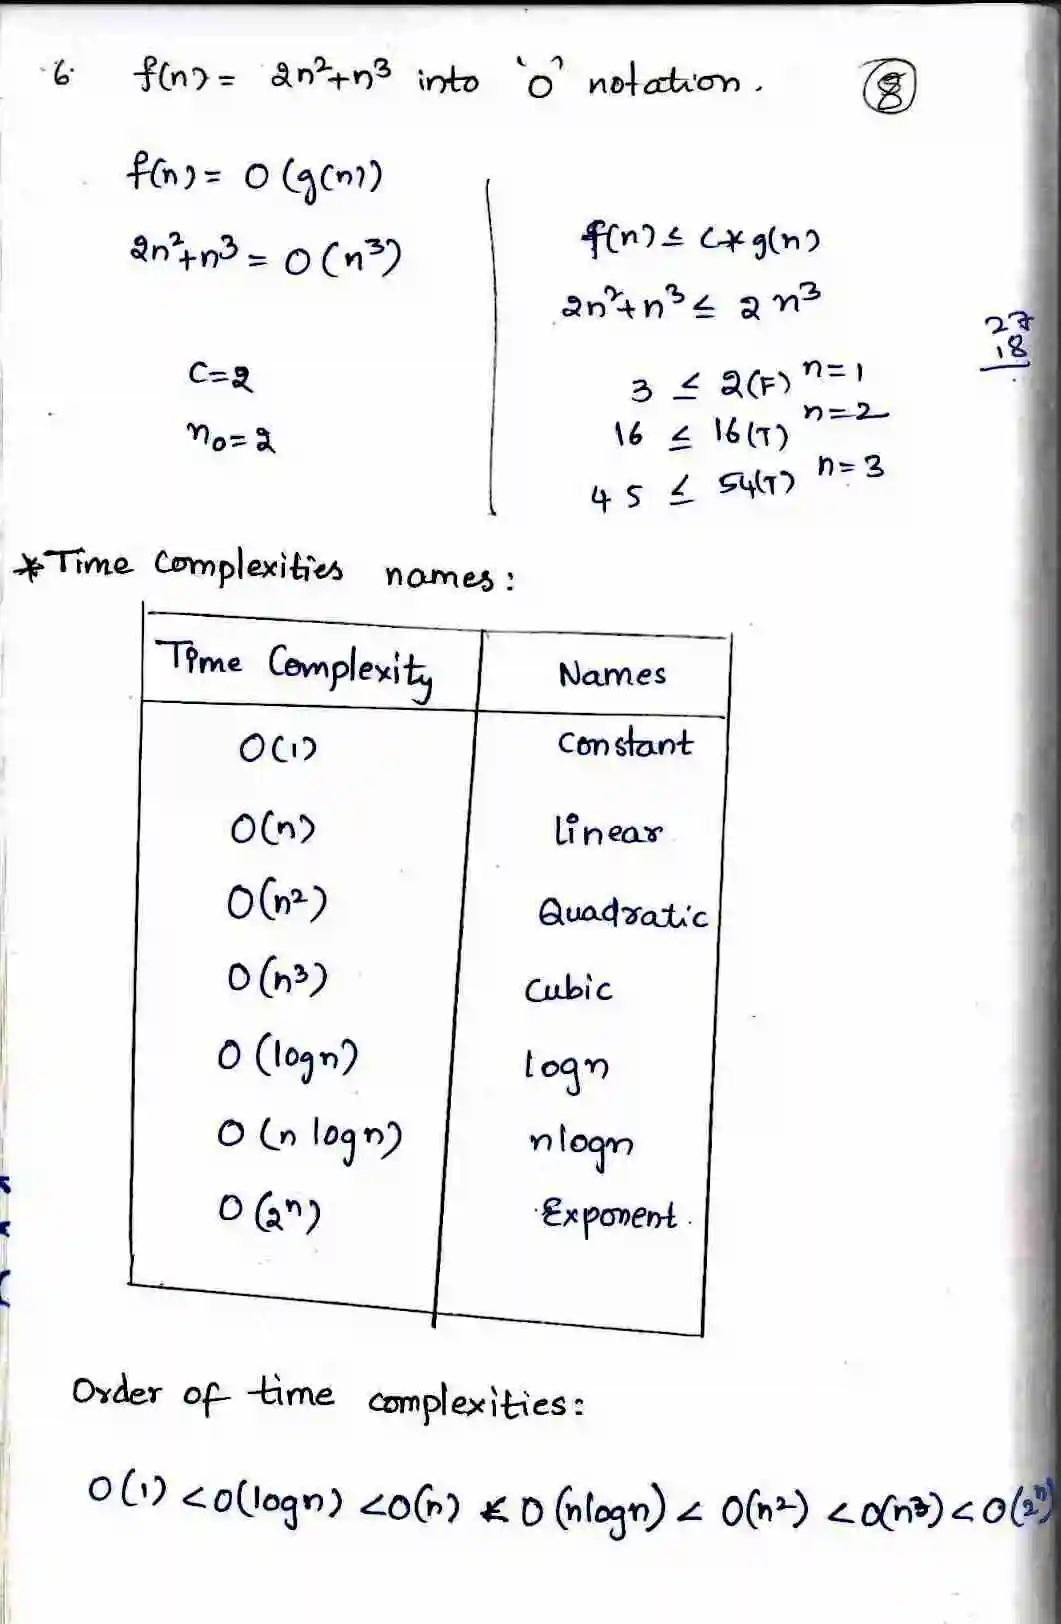 6. f(n) = 2n²+n³ into 'O' notation. 8
f(n) = O(g(n))
2n²+n³ = O(n³)
C=2
n₀=2
f(n) ≤ C*g(n)
2n²+n³ ≤ 2n³
3 ≤ 2(F) n=1
16 ≤ 16(T) n=2
45 ≤ 54(T) n=3
27
18
*Time Complexities names:
Time Complexity Names
O(1) Constant
O(n) Linear
O(n²) Quadratic
O(n³) Cubic
O(logn) logn
O(n logn) nlogn
O(2ⁿ) Exponent.
Order of time complexities:
O(1) <O(logn) <O(n) < O(nlogn) < O(n²) <O(n³) <O(2ⁿ)